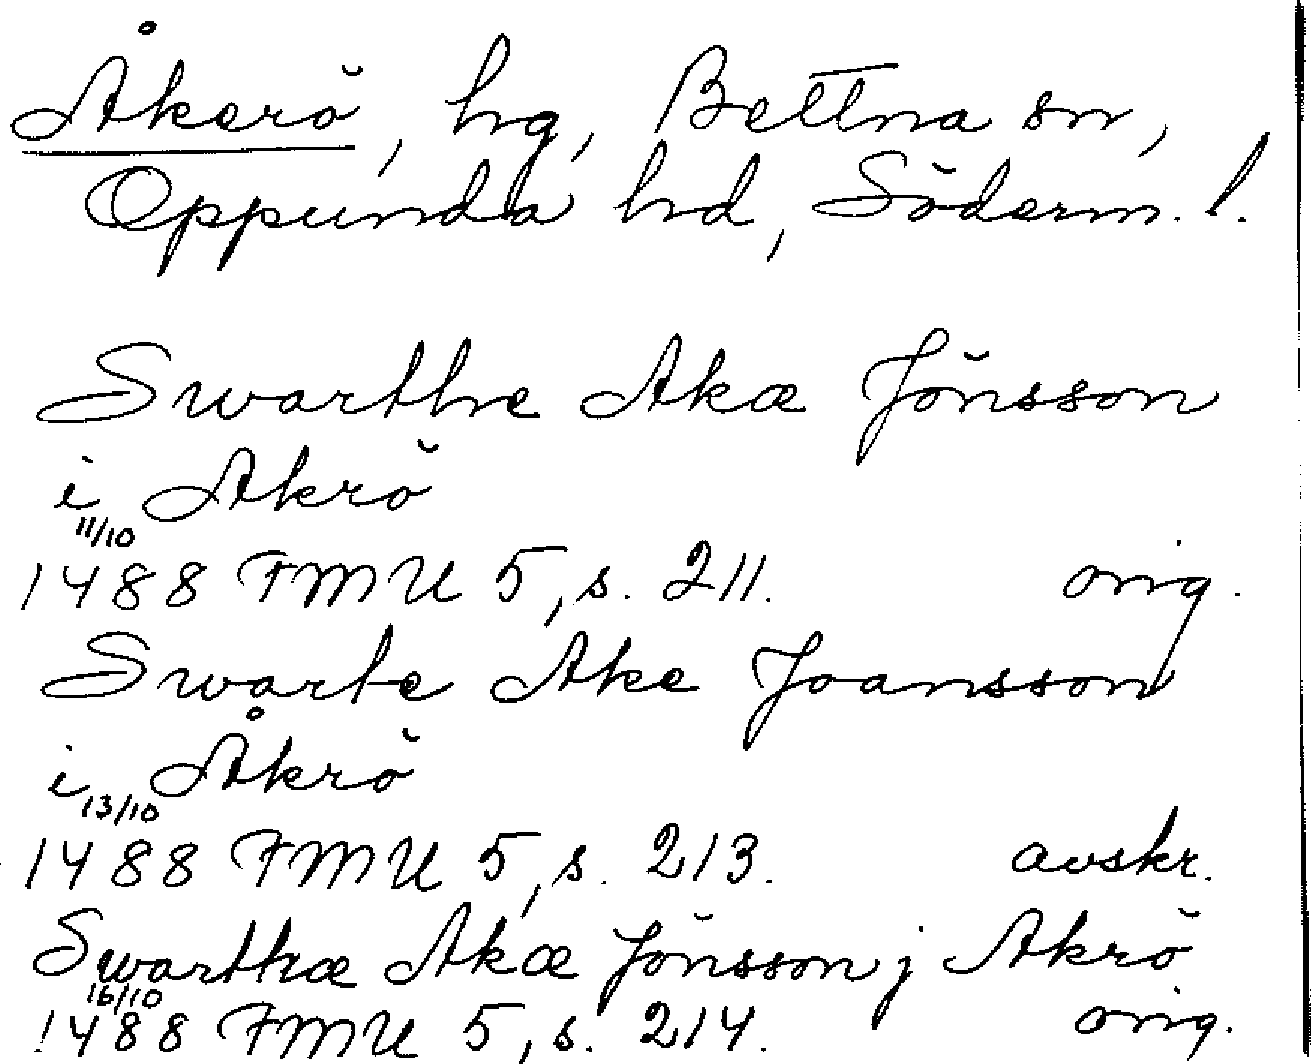 Åkerö, hg, Bettna sn,
Oppunda hd, Söderm. l.
Swarthe Akæ Jönsson
i Akrö
11/10
1488 FMU 5, s. 211. orig.
Swarte Ake Joansson
i Åkrö
13/10
1488 FMU 5, s. 213. avskr.
Swarthæ Akæ Jönsson j Akrö
16/10
1488 FMU 5, s. 214. orig.